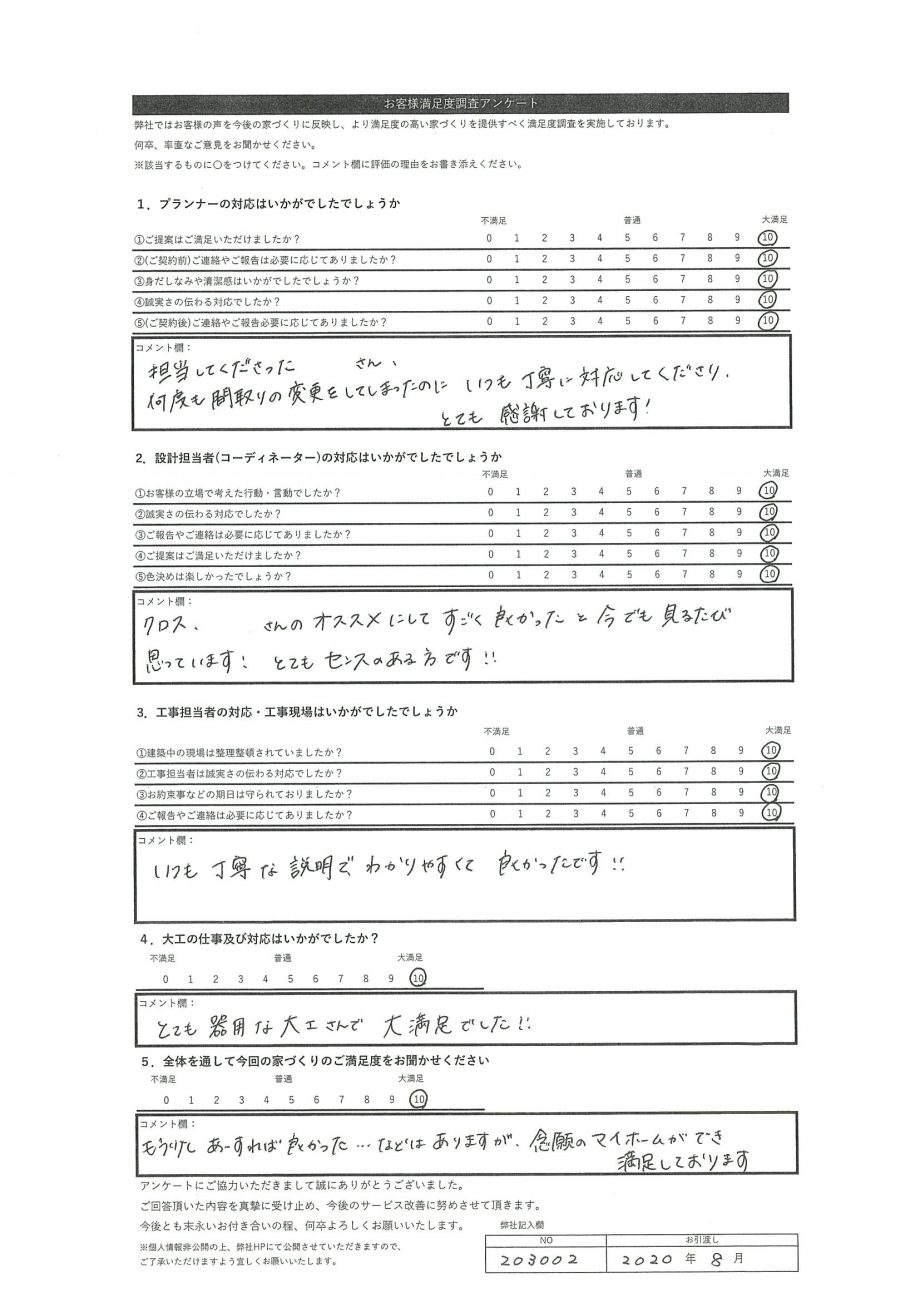 お客様満足度調査アンケート
弊社ではお客様の声を今後の家づくりに反映し、より満足度の高い家づくりを提供すべく満足度調査を実施しております。
何卒、率直なご意見をお聞かせください。
※該当するものに〇をつけてください。コメント欄に評価の理由をお書き添えください。
1．プランナーの対応はいかがでしたでしょうか
不満足 普通 大満足
①ご提案はご満足いただけましたか？ 0 1 2 3 4 5 6 7 8 9 10
②(ご契約前)ご連絡やご報告は必要に応じてありましたか？ 0 1 2 3 4 5 6 7 8 9 10
③身だしなみや清潔感はいかがでしたでしょうか？ 0 1 2 3 4 5 6 7 8 9 10
④誠実さの伝わる対応でしたか？ 0 1 2 3 4 5 6 7 8 9 10
⑤(ご契約後)ご連絡やご報告必要に応じてありましたか？ 0 1 2 3 4 5 6 7 8 9 10
コメント欄：
担当してくださった さん、
何度も間取りの変更をしてしまったのに いつも丁寧に対応してくださり、
とても 感謝しております!
2．設計担当者(コーディネーター)の対応はいかがでしたでしょうか
不満足 普通 大満足
①お客様の立場で考えた行動・言動でしたか？ 0 1 2 3 4 5 6 7 8 9 10
②誠実さの伝わる対応でしたか？ 0 1 2 3 4 5 6 7 8 9 10
③ご報告やご連絡は必要に応じてありましたか？ 0 1 2 3 4 5 6 7 8 9 10
④ご提案はご満足いただけましたか？ 0 1 2 3 4 5 6 7 8 9 10
⑤色決めは楽しかったでしょうか？ 0 1 2 3 4 5 6 7 8 9 10
コメント欄：
クロス、 さんの オススメにして すごく 良かった と 今でも 見るたび
思っています! とても センスのある方です!!
3．工事担当者の対応・工事現場はいかがでしたでしょうか
不満足 普通 大満足
①建築中の現場は整理整頓されていましたか？ 0 1 2 3 4 5 6 7 8 9 10
②工事担当者は誠実さの伝わる対応でしたか？ 0 1 2 3 4 5 6 7 8 9 10
③お約束事などの期日は守られておりましたか？ 0 1 2 3 4 5 6 7 8 9 10
④ご報告やご連絡は必要に応じてありましたか？ 0 1 2 3 4 5 6 7 8 9 10
コメント欄：
いつも 丁寧な 説明で わかりやすくて 良かったです!!
4．大工の仕事及び対応はいかがでしたか？
不満足 普通 大満足
0 1 2 3 4 5 6 7 8 9 10
コメント欄：
とても 器用な大工さんで 大満足でした!!
5．全体を通して今回の家づくりのご満足度をお聞かせください
不満足 普通 大満足
0 1 2 3 4 5 6 7 8 9 10
コメント欄：
もう少し あーすれば 良かった…などは ありますが、念願のマイホームができ
満足しております
アンケートにご協力いただきまして誠にありがとうございました。
ご回答頂いた内容を真摯に受け止め、今後のサービス改善に努めさせて頂きます。
今後とも末永いお付き合いの程、何卒よろしくお願いいたします。
※個人情報非公開の上、弊社HPにて公開させていただきますので、
ご了承いただけますよう宜しくお願いいたします。
弊社記入欄
NO お引渡し
203002 2020 年 8 月